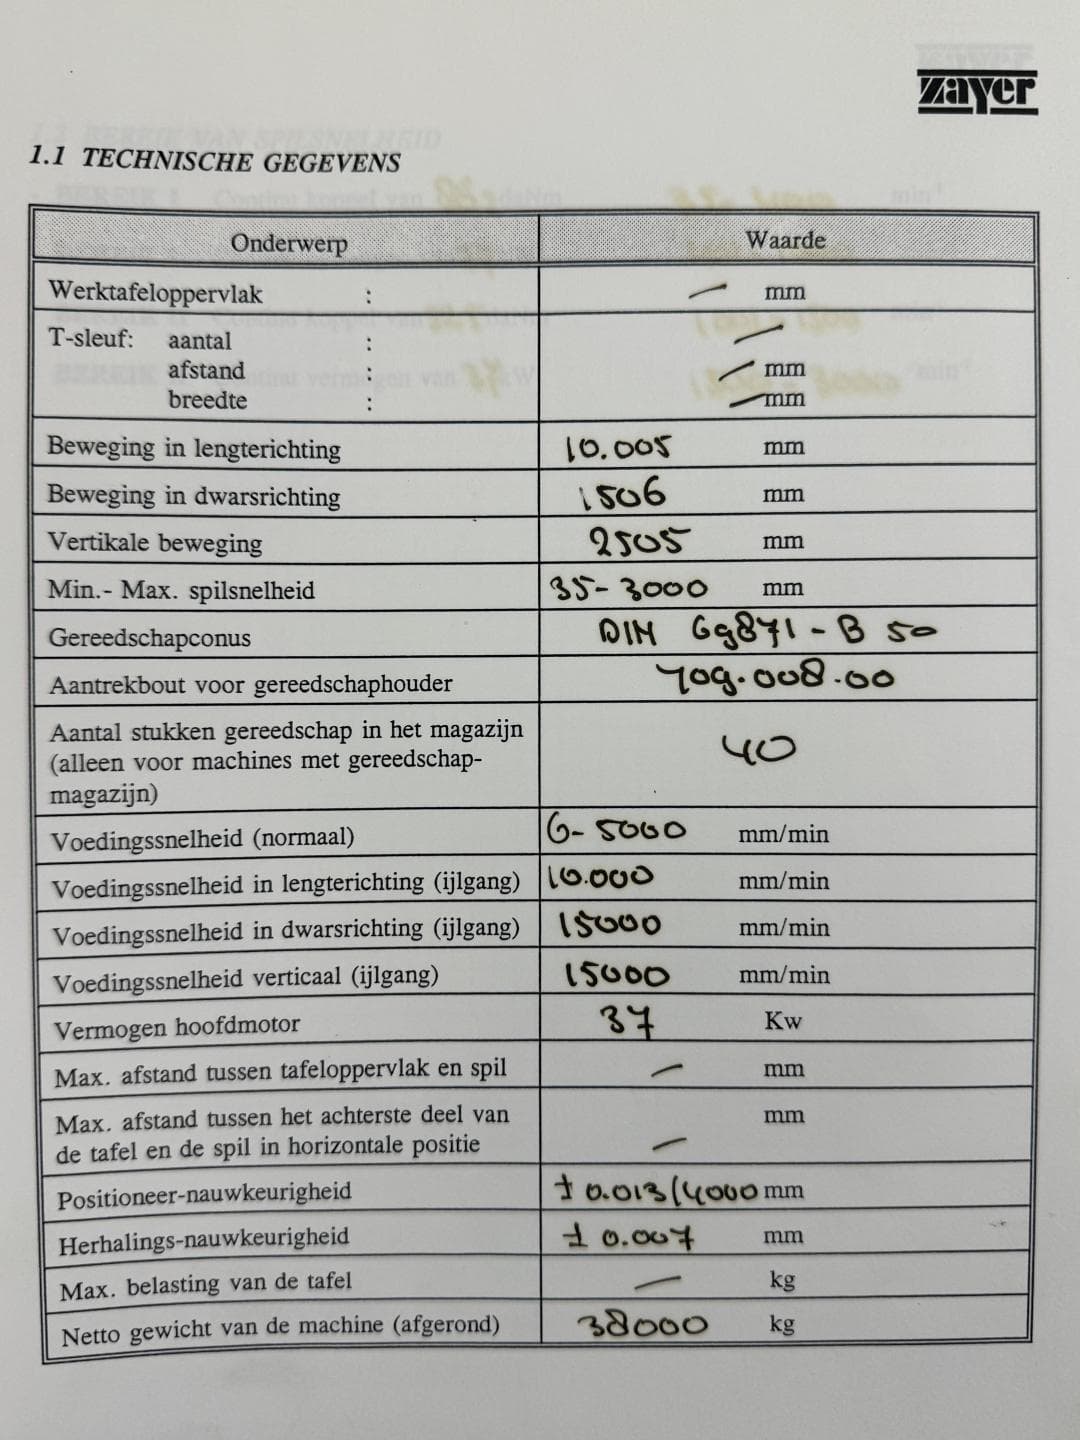 zayer
1.1 TECHNISCHE GEGEVENS
Onderwerp Waarde
Werktafeloppervlak : — mm
T-sleuf: aantal : —
afstand : — mm
breedte : — mm
Beweging in lengterichting 10.005 mm
Beweging in dwarsrichting 1506 mm
Vertikale beweging 2505 mm
Min.- Max. spilsnelheid 35-3000 mm
Gereedschapconus DIN 69871-B 50
Aantrekbout voor gereedschaphouder 709.008.00
Aantal stukken gereedschap in het magazijn
(alleen voor machines met gereedschap- 40
magazijn)
Voedingssnelheid (normaal) 6-5000 mm/min
Voedingssnelheid in lengterichting (ijlgang) 10.000 mm/min
Voedingssnelheid in dwarsrichting (ijlgang) 15000 mm/min
Voedingssnelheid verticaal (ijlgang) 15000 mm/min
Vermogen hoofdmotor 37 Kw
Max. afstand tussen tafeloppervlak en spil — mm
Max. afstand tussen het achterste deel van mm
de tafel en de spil in horizontale positie —
Positioneer-nauwkeurigheid ± 0.013/4000 mm
Herhalings-nauwkeurigheid ± 0.007 mm
Max. belasting van de tafel — kg
Netto gewicht van de machine (afgerond) 38000 kg